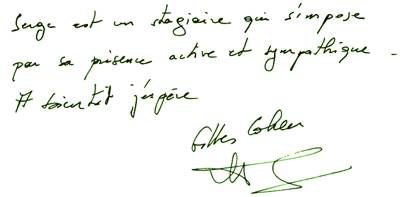 Serge est un stagiaire qui s'impose
par sa présence active et sympathique.
A bientôt j'espère
Gilles Cohen